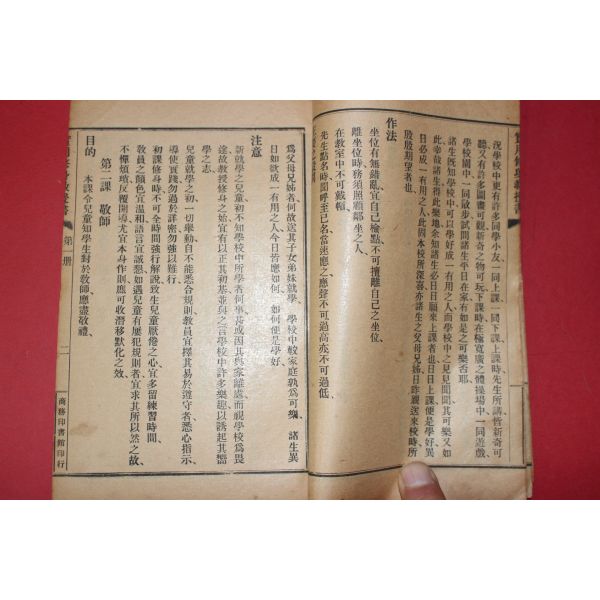 況學校中更有許多同學小友、一同上課、一同下課、上課時先生所講皆新奇可
聽、又有許多圖畫可觀、新奇之物可玩、下課時在極寬廣之體操場中、一同遊戲、
學校園中、一同散步、試問諸生平日在家、有如是之可樂否耶、
諸生既知學校中可以學好、成一有用之人、而學校中之見見聞聞、其可樂又如
此、幸哉諸生、得此樂地、余知諸生必日日願來上課者也、日日上課、便是學好、異
日必成一有用之人、此固本校所深喜、亦諸生之父母兄姊日昨親送來校時所
殷殷期望者也、
作法
坐位有無錯亂、宜自己檢點、不可擅離自己之坐位、
離坐位時、務須照顧鄰坐之人、
在教室中不可戴帽、
先生點名時、聞呼至己名、當速應之、應聲不可過高、亦不可過低、
爲父母兄姊者、何故送其子女弟妹就學、學校中較家庭孰爲可樂、諸生異
日如欲成一有用之人、今日皆應如何、如何便是學好、
注意
新就學之兒童、初不知學校中所學者何事、甚或因其與家離處、而視學校爲畏
途、故教授修身之始、宜有以正其初基、並與之言學校中許多樂趣、以誘起其嚮
學之志、
兒童就學之初、一切舉動自不能悉合規則、教員宜擇其易於遵守者、悉心指示、
導使實踐、勿過於詳密、勿強以難行、
初課修身時、不可全時間強行解說、致生兒童厭倦之心、宜多留練習時間、
教員之顏色宜溫和、語言宜誠懇、如遇兒童有屢犯規則者、宜求其所以然之故、
不憚煩瑣、反覆開導、尤宜本身作則、庶可收潛移默化之效、
第二課 敬師
目的
本課令兒童知學生對於教師、應盡敬禮、
第一册
二
商務印書館印行